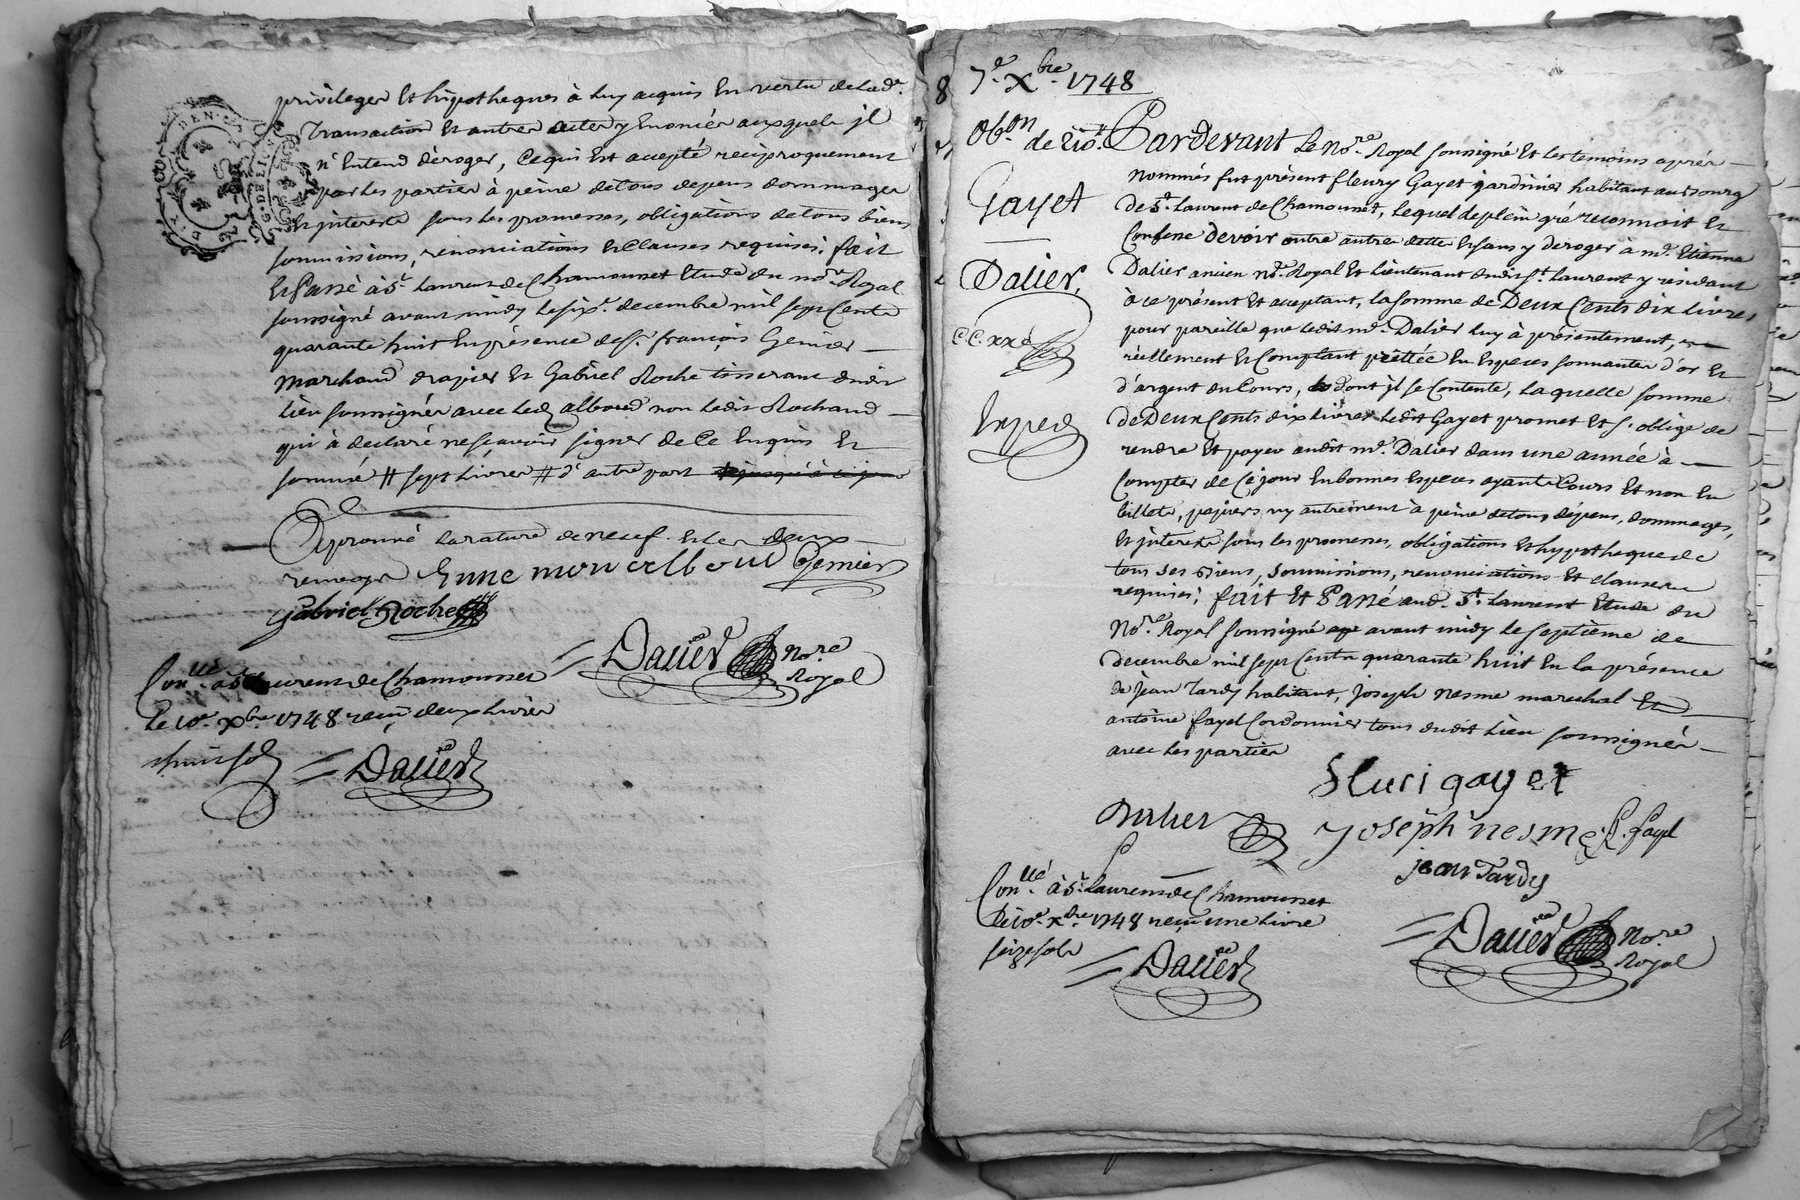 privileges et hipotheques à luy acquis en vertu de lad.e
Transaction et autres actes y enoncés auxquels jl
n'Entend déroger, Ce qui Est accepté reciproquement
par les parties à peine de tous depens dommages
Et jnterests sous les promesses, obligations de tous biens
soumissions, renonciations et Clauses requises: fait
Et Passé à St. Laurent de Chamousset Etude du no.re Royal
soussigné avant midy le six.e decembre mil sept Cents
quarante huit En présence de sr. françois Gemier
marchand drapier et Gabriel Roche tisserant dudit
lieu soussignés avec led. alboud non ledit Rochand
qui à declaré ne sçavoir signer de ce Enquis Et
sommé # sept Livres # d'autre part
Aprouvé la rature de neuf et les deux
renvoys Enne mon alboud Gemier
Gabriel Roche
Dalier no.re
Royal
Con.llé à St. Laurens de Chamousset
le 10e. xbre 1748 reçu deux livres
huit sols
Dalier
8
7e. Xbre. 1748
Ob.on
de 210.lt
Gayet
Dalier,
Exped
Pardevant Le No.re Royal soussigné Et les temoins aprés
Nommés fut présent fleury Gayet jardinier habitant au Bourg
de St. Laurent de Chamousset, Lequel de plein gré reconnoit Et
Confesse devoir outre autre dette Et sans y deroger à me. Etienne
Dalier ancien no.re Royal et Lieutenant dudit St. Laurent y résidant
à ce présent Et acceptant, la somme de Deux Cents dix Livres
pour pareille que ledit me. Dalier luy à présentement,
réellement Et Comptant prêttée En Especes sonnantes d'or Et
d'argent du Cours, dont jl se Contente, Laquelle somme
de Deux Cents dix Livres Ledit Gayet promet Et s'oblige de
rendre Et payer audit me. Dalier dans une année à
Compter de Ce jour En bonnes Especes ayants Cours Et non En
billets, papiers, ny autrement à peine de tous dépens, dommages,
Et jnterests sous les promesses, obligations Et hypotheque de
tous ses Biens, soumissions, renonciations Et clauses
requises; fait Et Passé aud. St. Laurent Etude du
No.re Royal soussigné avant midy le septième de
decembre mil sept Cents quarante huit En la présence
de jean Tardy habitant, joseph nesme marechal Et
antoine fayel Cordonnier tous dudit Lieu soussignés
avec les parties
fluri gayet
Dalier
Joseph nesme
A. fayel
jean Tardy
Con.llé à St. Laurens de Chamousset
Le 10e. xbre 1748 reçu une Livre
seize sols
Dalier
Dalier No.re
Royal